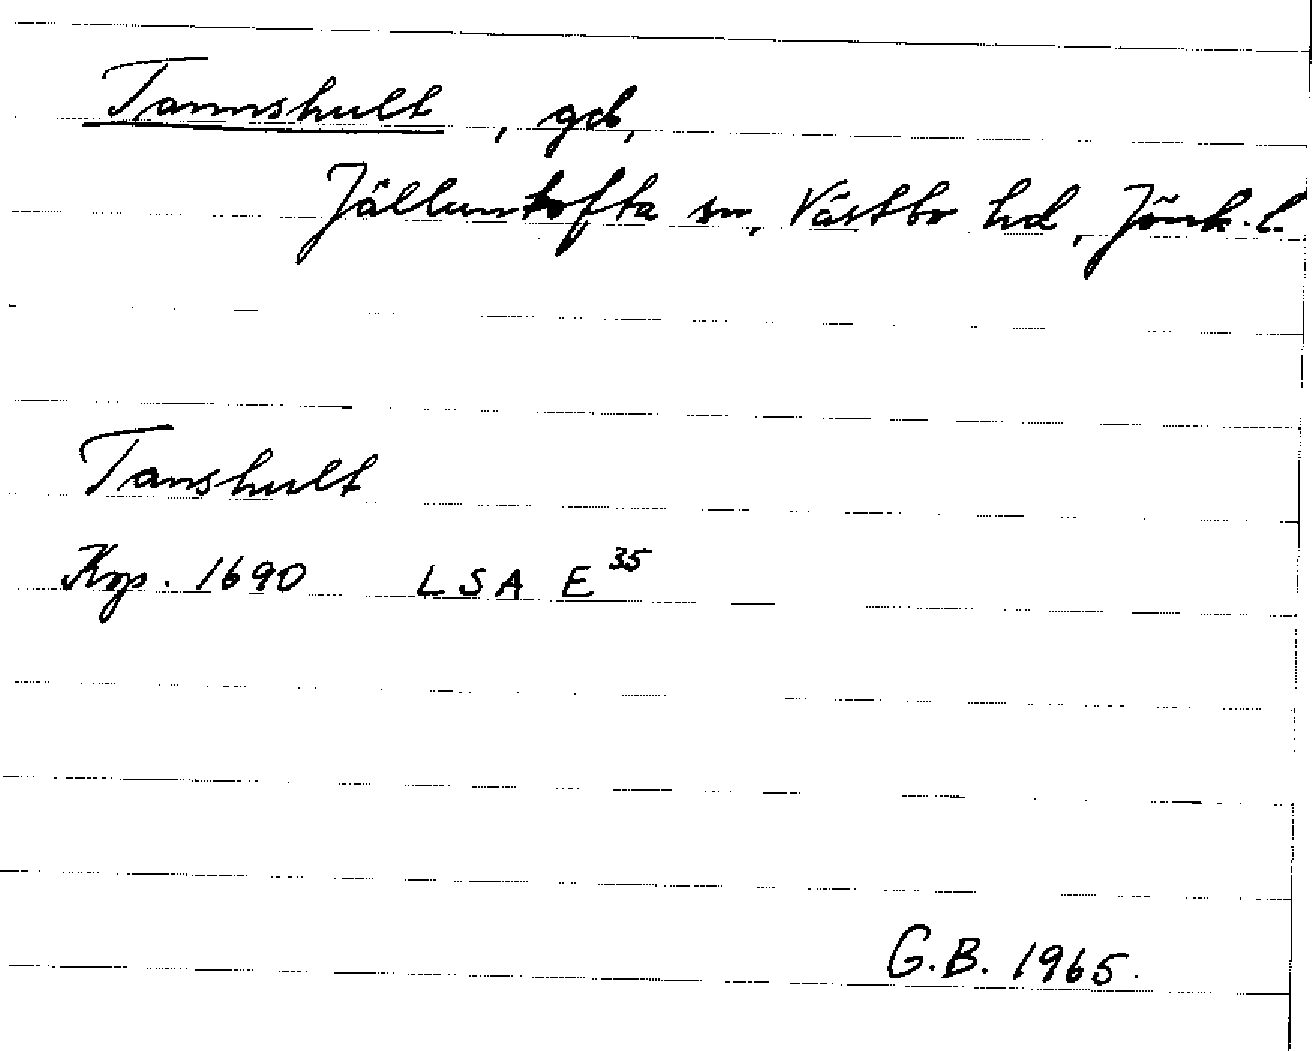 Tannshult, gd,
Jälluntofta sn, Västbo hd, Jönk. l.
Tanshult
Krp. 1690 LSA E 35
G.B. 1965.